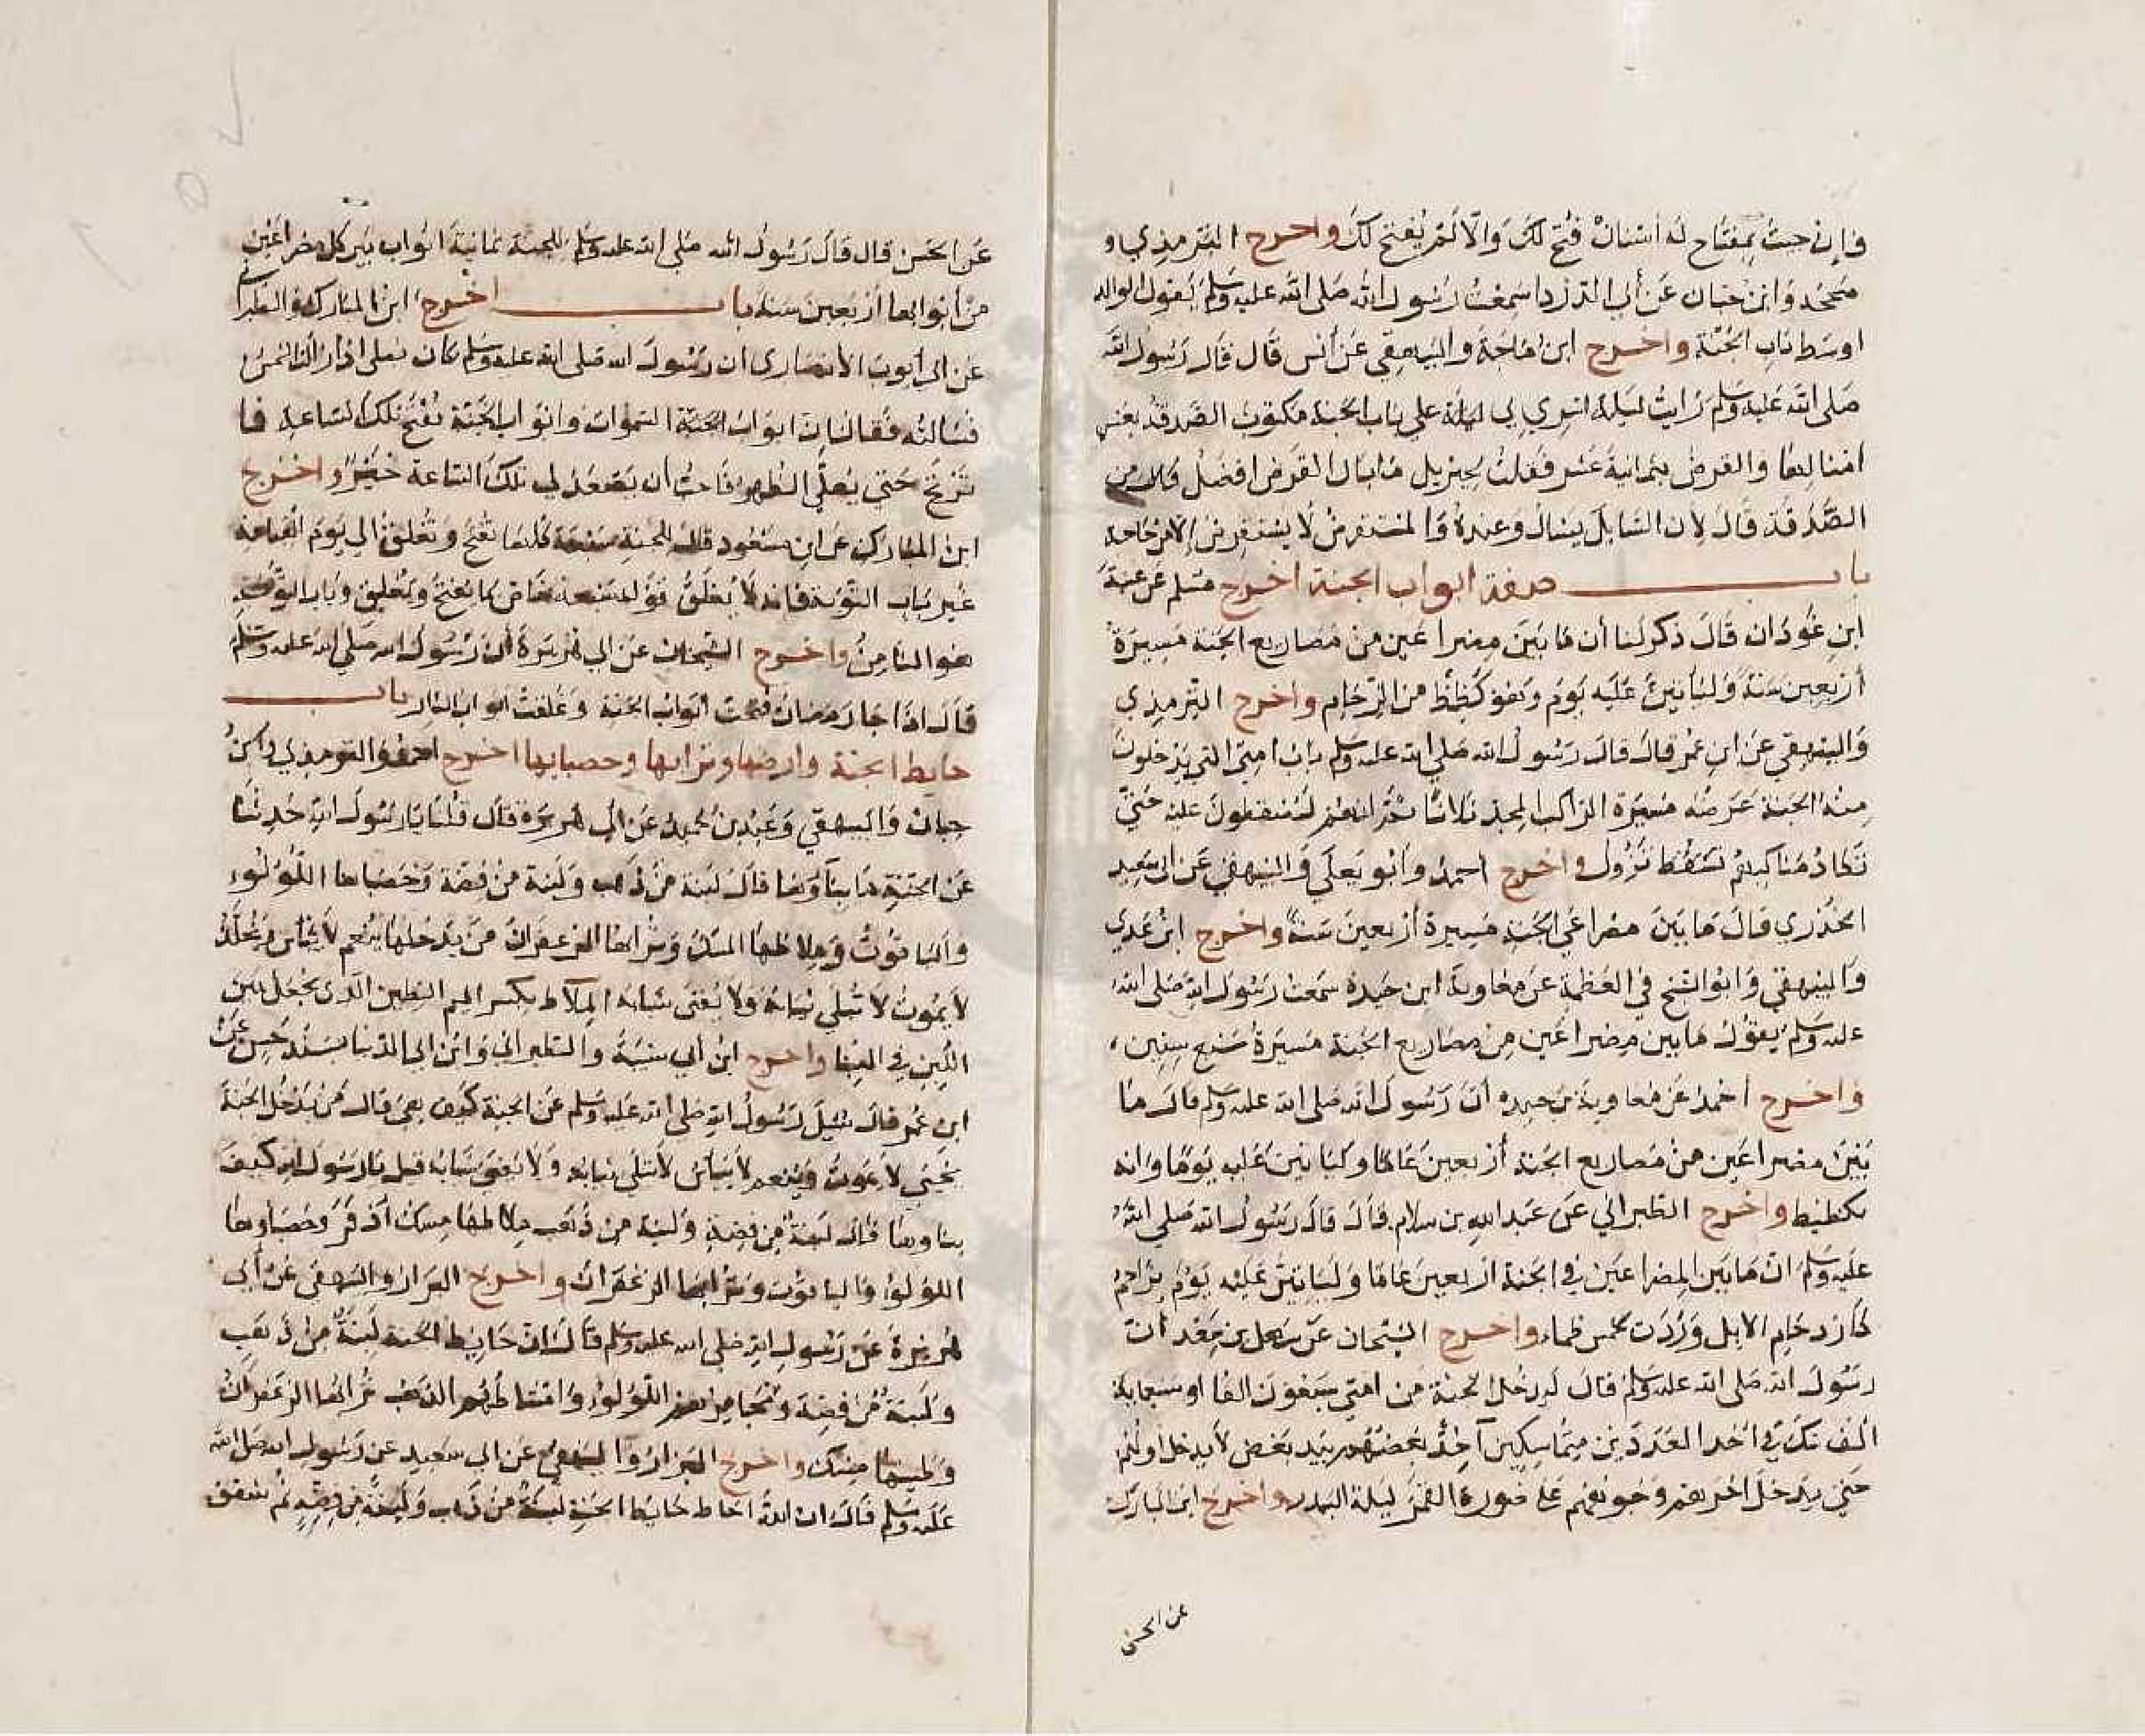 فإن جئت بمفتاح له أسنان فتح لك وإلا لم يفتح لك واخرج الترمذي و
صححه وابن حبان عن أبي الدرداء سمعت رسول الله صلى الله عليه وسلم يقول الوالد
اوسط باب الجنة واخرج ابن ماجة والبيهقي عن أنس قال قال رسول الله
صلى الله عليه وسلم رايت ليلة اسري بي ليلة علي باب الجنة مكتوب الصدقة بعشر
امثالها والقرض بثمانية عشر فقلت لجبريل ما بال القرض افضل من
الصدقة قال لان السايل يسال وعنده والمستقرض لا يستقرض إلا من حاجة
باب صفة ابواب الجنة اخرج مسلم عن عتبة
ابن غزوان قال ذكر لنا أن ما بين مصراعين من مصاريع الجنة مسيرة
أربعين سنة وليأتين عليه يوم وهو كظيظ من الزحام واخرج الترمذي
والبيهقي عن ابن عمر قال قال رسول الله صلي الله عليه وسلم باب امتي التي يدخلون
منه الجنة عرضه مسيرة الراكب المجد ثلاثا ثم انهم ليضغطون عليه حتى
تكاد مناكبهم تسقط تزول واخرج احمد وأبو يعلي والبيهقي عن ابي سعيد
الخدري قال ما بين مصراعي الجنة مسيرة أربعين سنة واخرج ابن عدي
والبيهقي وابو الشيخ في العظمة عن معاوية ابن حيدة سمعت رسول الله صلى الله
عليه وسلم يقول ما بين مصراعين من مصاريع الجنة مسيرة سبع سنين،
واخرج أحمد عن معاوية بن حيده أن رسول الله صلى الله عليه وسلم قال ما
بين مصراعين من مصاريع الجنة أربعين عاما وليأتين عليه يوما وانه
لكظيظ واخرج الطبراني عن عبد الله بن سلام قال قال رسول الله صلي الله
عليه وسلم ان ما بين المصراعين في الجنة اربعين عاما وليأتين عليه يوم يزاحم
كازدحام الابل وردت لخمس ظماء واخرج الشيخان عن سهل بن سعد ان
رسول الله صلى الله عليه وسلم قال ليدخل الجنة من امتي سبعون الفا او سبعماية
ألف شك في احد العددين متماسكين آخذ بعضهم بيد بعض لا يدخل اولهم
حتي يدخل اخرهم وجوههم علي صورة القمر ليلة البدر واخرج ابن المبارك
عن الحسن
عن الحسن قال قال رسول الله صلى الله عليه وسلم للجنة ثمانية ابواب بين كل مصراعين
من أبوابها أربعين سنة باب اخرج ابن المبارك والطبراني
عن ابي أيوب الأنصاري ان رسول الله صلى الله عليه وسلم كان يصلي اذا زالت الشمس
فسالته فقال ان ابواب السموات وابواب الجنة تفتح تلك الساعة فما
ترتج حتي يصلي الظهر فاحب أن يصعد لي تلك الساعة خير واخرج
ابن المبارك عن ابن مسعود قال للجنة كلها تفتح وتغلق الي يوم القيامة
غير باب التوبة فانه لا يغلق قوله كما تفتح وتغلق وباب التوبة
هو الثامن واخرج الشيخان عن ابي هريرة أن رسول الله صلي الله عليه وسلم
قال اذا جاء رمضان فتحت أبواب الجنة وغلقت ابواب النار باب
حايط الجنة وارضها وترابها وحصبايها اخرج احمد والترمذي وابن
حبان والبيهقي وعبد بن حميد عن أبي هريرة قال قلنا يا رسول الله حدثنا
عن الجنة ما بناؤها قال لبنة من ذهب ولبنة من فضة وحصباها اللؤلؤ
والياقوت وملاطها المسك وترابها الزعفران من يدخلها ينعم لا يبأس ويخلد
لا يموت لا تبلي ثيابه ولا يفنى شبابه الملاط بكسر الميم الطين الذي يجعل بين
اللبن في البنا واخرج ابن أبي شيبة والطبراني وابن ابي الدنيا بسند حسن عن
ابن عمر قال سئل رسول الله صلى الله عليه وسلم عن الجنة كيف هي قال من يدخل الجنة
يحيي لا يموت وينعم لا يبأس لا تبلي ثيابه ولا يفني شبابه قيل يا رسول الله كيف
بناوها قال لبنة من فضة ولبنة من ذهب ملاطها مسك أذفر وحصباوها
اللؤلؤ والياقوت وترابها الزعفران واخرج البزار والبيهقي عن أبي
هريرة عن رسول الله صلي الله عليه وسلم قال ان حايط الجنة لبنة من ذهب
ولبنة من فضة ومجامرهم اللؤلؤ وامشاطهم الذهب ترابها الزعفران
وطينها مسك واخرج البزار والبيهقي عن ابي سعيد عن رسول الله صلى الله
عليه وسلم قال ان الله احاط حايط الجنة لبنة من ذهب ولبنة من فضة ثم شقق